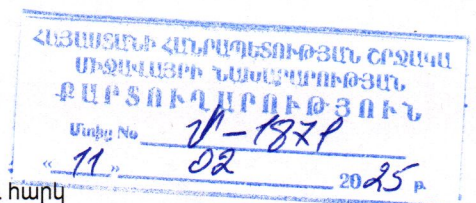 ՀԱՅԱՍՏԱՆԻ ՀԱՆՐԱՊԵՏՈՒԹՅԱՆ ՇՐՋԱԿԱ
ՄԻՋԱՎԱՅՐԻ ՆԱԽԱՐԱՐՈՒԹՅԱՆ
ՔԱՐՏՈՒՂԱՐՈՒԹՅՈՒՆ
Մտից No
« 11 » 02 2025 թ.
հարկ